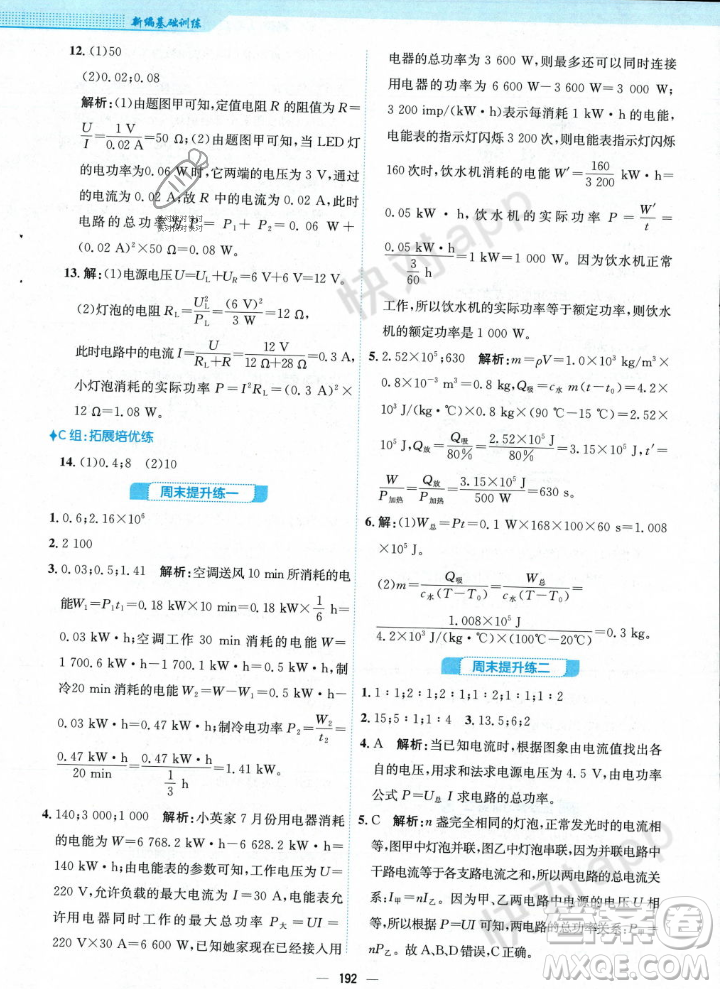 新编基础训练
12. (1)50
(2)0.02;0.08
解析:(1)由题图甲可知,定值电阻 R 的阻值为 R=
U/I=1 V/0.02 A=50 Ω。(2)由题图丙可知,当 LED 灯
的电功率为0.06 W时,它两端的电压为 3 V,通过
的电流为 0.02 A;故 R 中的电流为 0.02 A,此时
电路的总功率为 P=P₁+P₂=0.06 W+
(0.02 A)²×50 Ω=0.08 W。
13. 解:(1)电源电压U=U_L+U_R=6 V+6 V=12 V。
(2)灯泡的电阻 R_L=U_L²/P_L=(6 V)²/3 W=12 Ω,
此时电路中的电流 I=U/(R_L+R)=12 V/(12 Ω+28 Ω)=0.3 A,
小灯泡消耗的实际功率 P=I²R_L=(0.3 A)²×
12 Ω=1.08 W。
C组:拓展培优练
14. (1)0.4;8 (2)10
周末提升练一
1. 0.6;2.16×10⁶
2. 2 100
3. 0.03;0.5;1.41 解析:空调送风 10 min所消耗的电
能W₁=P₁t₁=0.18 kW·10 min=0.18 kW×1/6 h=
0.03 kW·h;空调工作 30 min 消耗的电能 W=
1 700.6 kW·h-1 700.1 kW·h=0.5 kW·h,制
冷20 min消耗的电能W₂=W-W₁=0.5 kW·h-
0.03 kW·h=0.47 kW·h;制冷电功率 P₂=W₂/t₂=
0.47 kW·h/20 min=0.47 kW·h/(1/3 h)=1.41 kW。
4. 140;3 000;1 000 解析:小英家 7 月份用电器消耗
的电能为 W=6 768.2 kW·h-6 628.2 kW·h=
140 kW·h;由电能表的参数可知,工作电压为 U=
220 V,允许负载的最大电流为 I=30 A,电能表允
许用电器同时工作的最大总功率为 P大=UI=
220 V×30 A=6 600 W,已知她家现在已经接入用
电器的总功率为 3 600 W,则还可以同时连接
使用电器的功率为 6 600 W-3 600 W=3 000 W;
3 200 imp/(kW·h)表示每消耗 1 kW·h 的电能,
电能表的指示灯闪烁 3 200 次,则电能表指示灯闪烁
160次时,饮水机消耗的电能为 W′=160/3 200 kW·h=
0.05 kW·h,饮水机的实际功率为 P=W′/t=
0.05 kW·h/(3/60 h)=1 kW=1 000 W。因为饮水机正常
工作,所以饮水机的实际功率等于额定功率,则饮水
机的额定功率为 1 000 W。
5. 2.52×10⁵;630 解析:m=ρV=1.0×10³ kg/m³×
0.8×10⁻³ m³=0.8 kg,Q吸=c水 m(t-t₀)=4.2×
10³ J/(kg·℃)×0.8 kg×(90 ℃-15 ℃)=2.52×
10⁵ J,Q放=Q吸/80%=2.52×10⁵ J/80%=3.15×10⁵ J,t′=
W/P加热=Q放/P加热=3.15×10⁵ J/500 W=630 s。
6. 解:(1)W总=Pt=0.1 W×168×100×60 s=1.008
×10⁵ J。
(2)m=Q吸/c水(T-T₀)=W总/c水(T-T₀)=
1.008×10⁵ J/4.2×10³ J/(kg·℃)×(100℃-20℃)=0.3 kg。
周末提升练二
1. 1∶1;2∶1;2∶1;1∶1;1∶2
2. 15;5∶1;1∶4 3. 13.5;6;2
4. A 解析:当已知电流时,根据图象由电流值找出各
自的电压,用串联和法求电源电压为 4.5 V,由电功率
公式 P=U总 I 求电路的总功率。
5. C 解析:n 盏完全相同的灯泡,正常发光时的电流相
等,图甲中灯泡并联,图乙中灯泡串联,并联电路中
干路电流等于各支路电流之和,故两电路的总电流关
系:I甲=nI乙。因甲、乙两电路中电源的电压 U 相
等,所以,根据 P=UI 可知,两电路的总功率关系:P甲
=nP乙。故 A、B、D 错误,C 正确。
192
快对app
快对app
快对app
答案圈
MXQE.COM